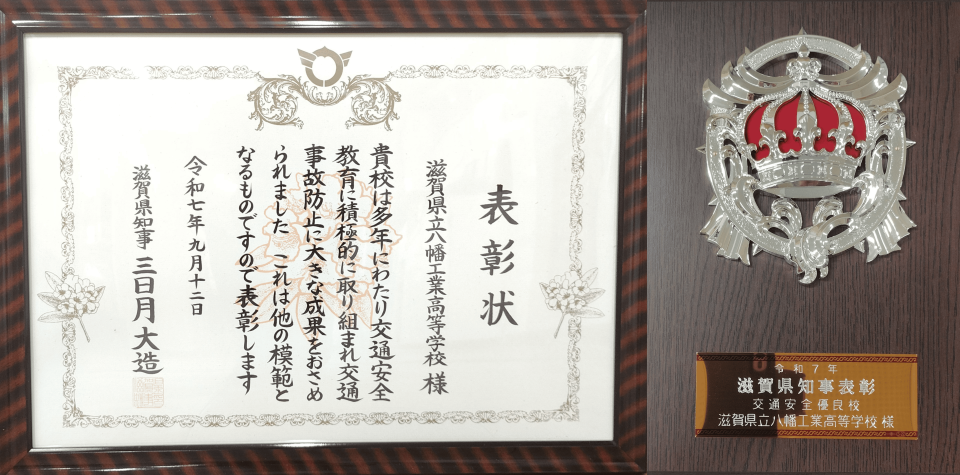 表彰状
滋賀県立八幡工業高等学校 様
貴校は多年にわたり交通安全
教育に積極的に取り組まれ交通
事故防止に大きな成果をおさめ
られました これは他の模範と
なるものですので表彰します
令和七年九月十二日
滋賀県知事 三日月大造
令和7年
滋賀県知事表彰
交通安全優良校
滋賀県立八幡工業高等学校 様